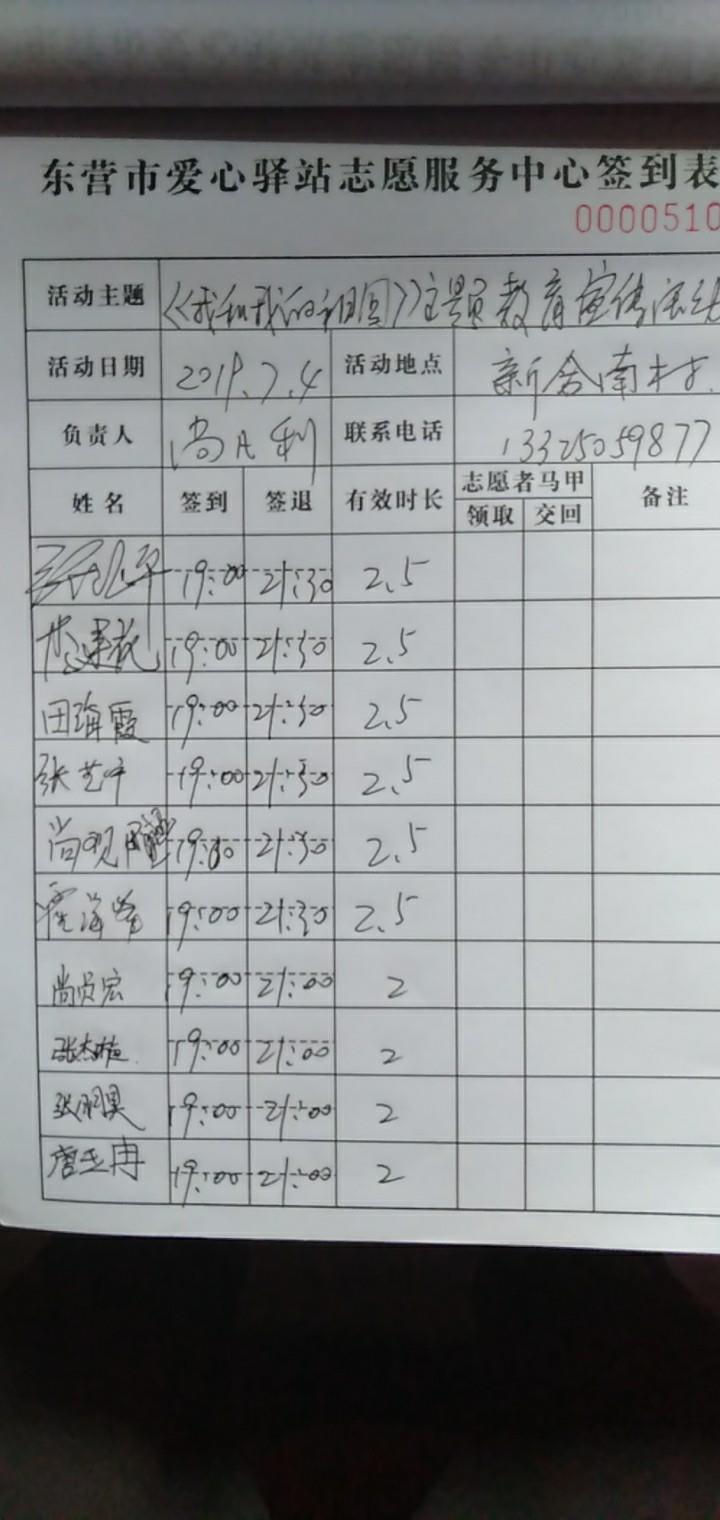 东营市爱心驿站志愿服务中心签到表
0000510
活动主题 《我和我的祖国》主题教育宣传活动
活动日期 2019.7.4 活动地点 新合南村.
负责人 尚 利 联系电话 13325059877
姓名 签到 签退 有效时长 志愿者马甲 备注
领取 交回
19:00 21:30 2.5
19:00 21:30 2.5
田海霞 19:00 21:30 2.5
张艺 19:00 21:30 2.5
尚观 21:30 2.5
霍海 19:00 21:30 2.5
尚贞宏 19:00 21:00 2
张杰 19:00 21:00 2
张 昊 19:00 21:00 2
唐玉冉 19:00 21:00 2